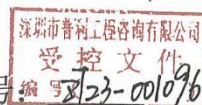 深圳市普利工程咨询有限公司
受控文件
编号：8J23-001096